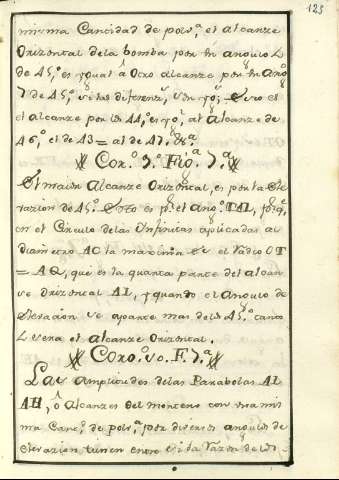 123
misma Cantidad de polv.ª, el alcanze
Orizontal de la bomba por un angulo
de 45,º es ygual â Otro alcanze por un ang.º
de 45,º
el alcanze por los 44,º es yg.l al alcanze de
46,º el de 43 = al de 47,º &.ª
Cor.º 5.º Fig.ª 7.ª
El maior alcanze Orizontal, es por la Ele
vazion de 45.º Esto es p.r el ang.º TAL, porq.e
en el Circulo de las Infinitas aplicadas al
diametro AC la maxima es el Radio OT
= AQ, que es la quarta parte del alcan
ze Orizontal AL, y quando el Angulo de
Elevazion se aparte mas de los 45,º tanto
sera el alcanze Orizontal.
Coro.º F. 7.ª
Las Amplitudes de las Parabolas AL
AH, ô Alcanzes del mortero con una mis
ma Cant.d de polv.ª, por diversos angulos de
elevazion tienen entre si la Razon de los